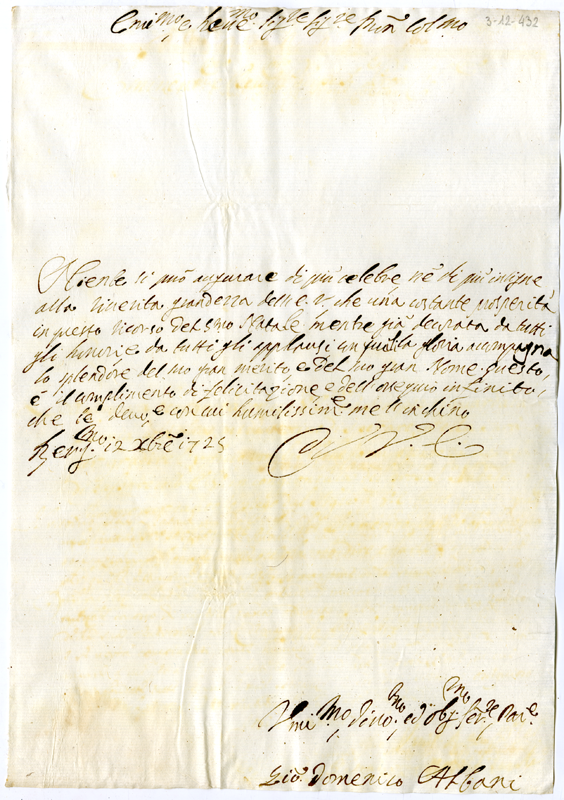 Em.mo e Rev.mo Sig.re Sig.re Pron Col.mo
3-12-432
Niente si può augurare di più celebre, nè di più insigne
alla riverita grandezza dell'E.V. che una costante prosperità
in questo ricorso del S.mo Natale, mentre già decorata da tutti
gli honori e da tutti gli applausi la gloria accompagna
lo splendore del suo gran merito e del suo gran Nome. questo
è il complimento di felicitazione e dell'ossequio infinito,
che le devo, e con cui humilissim.e me l'inchino
Berg.mo 12 Xbre 1725
V. E.
Umi.mo Divo.mo ed Obl.mo Ser.re
Gio. Domenico Albani